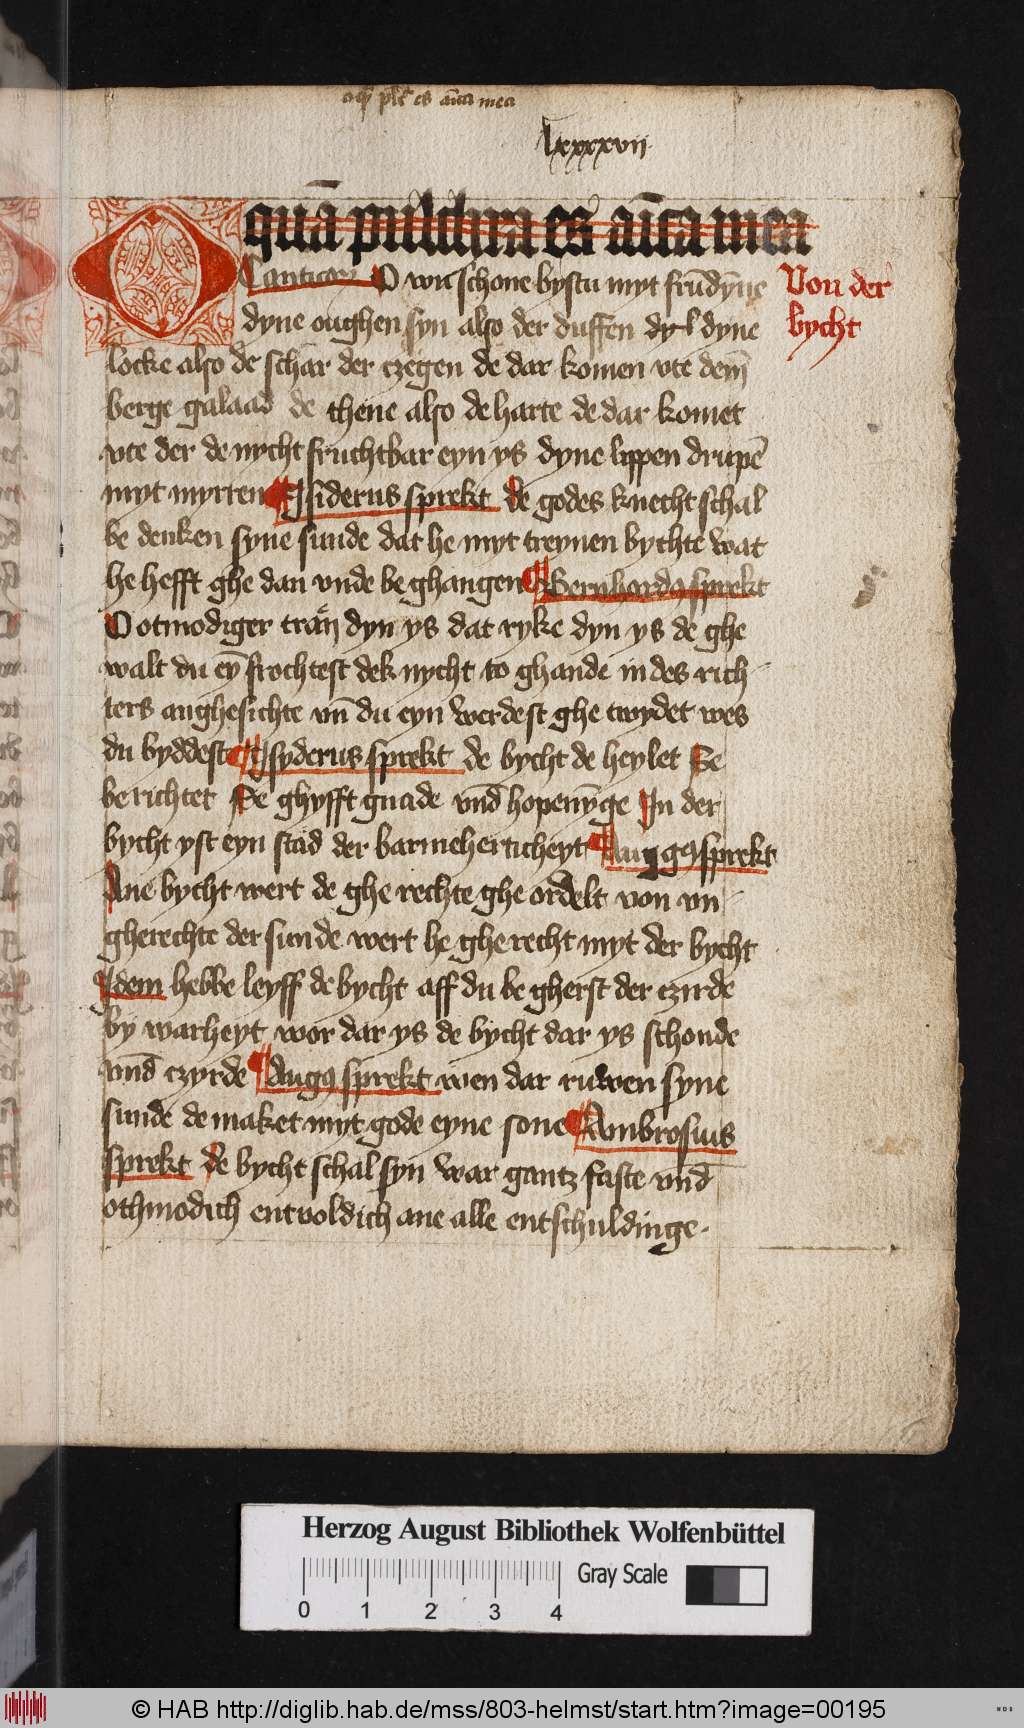 es am̄ca mea
lxxxxvii
O quā pulchra es am̄ca mea
Von der
bycht
Canticorum O wu schone bystu myt frūdȳne
dyne oughen syn also der duffen dyne
locke also de schar der czegen de dar komen vte dem̄
berge galaad de thene also de harte de dar komet
vte der de nycht fruchtbar eyn ys dyne lippen drupē
myt myrren Isiderus sprekt de godes knecht schal
be denken syne sunde dat he myt treynen bychte wat
he hefft ghe dan vnde be ghangen Bernhardus sprekt
O otmodiger trān dyn ys dat ryke dyn ys de ghe
walt du eȳ frochtest dek nycht to ghande in des rich
ters anghesichte vn̄ du eyn werdest ghe twydet wes
du byddest Isyderus sprekt de bycht de heylet Se
be richtet Se ghyfft gnade vnd̄ hopenȳge In der
bycht yst eyn stad der barmeherticheyt Augus sprekt
Ane bycht wert de ghe rechte ghe ordelt von vn
gherechte der sunde wert he ghe recht myt der bycht
Idem hebbe leyff de bycht aff du be gherst der czirde
by warheyt wor dar ys de bycht dar ys schonde
vnd̄ czyrde Augus sprekt wen dar ruwen syne
sunde de maket myt gode eyne sone Ambrosius
sprekt de bycht schal syn war gantz faste vnd̄
othmodich entvoldich ane alle entschuldinge
Herzog August Bibliothek Wolfenbüttel
Gray Scale
0 1 2 3 4
© HAB http://diglib.hab.de/mss/803-helmst/start.htm?image=00195